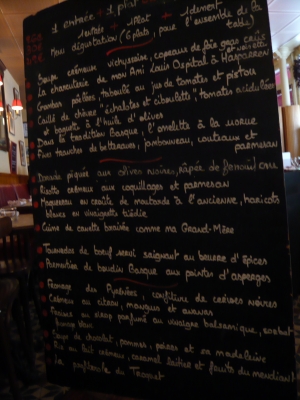 1 entrée + 1 plat
1 entrée + 1 plat + 1 dessert
Menu dégustation (6 plats, pour l'ensemble de la table)
Soupe crémeuse vichyssoise, copeaux de foie gras crus
La charcuterie de mon Ami Louis Ospital à Hasparren
Gambas poêlées, taboulé au jus de tomates et pistou
Caillé de chèvre "échalotes et ciboulette", tomates acidulées
et à l'huile d'olives
Dans la tradition Basque, l'omelette à la morue
betteraves, jambonneau, couteaux et
parmesan
piquée aux olives noires, râpée de fenouil cru
Risotto crémeux aux coquillages et parmesan
Maquereau en croûte de moutarde à l'ancienne, haricots
blancs en vinaigrette tiède
Cuisse de canette braisée comme ma Grand-Mère
Tournedos de bœuf servi saignant au beurre d'épices
de boudin Basque aux pointes d'asperges
Fromage des Pyrénées, confiture de cerises noires
Crémeux au citron, mangues et ananas
Fraises au sirop parfumé au vinaigre balsamique, sorbet
fromage blanc
Soupe de chocolat, pommes, poires et sa madeleine
au lait crémeux, caramel laitier et fruits du mendiant
La profiterole du Troquet